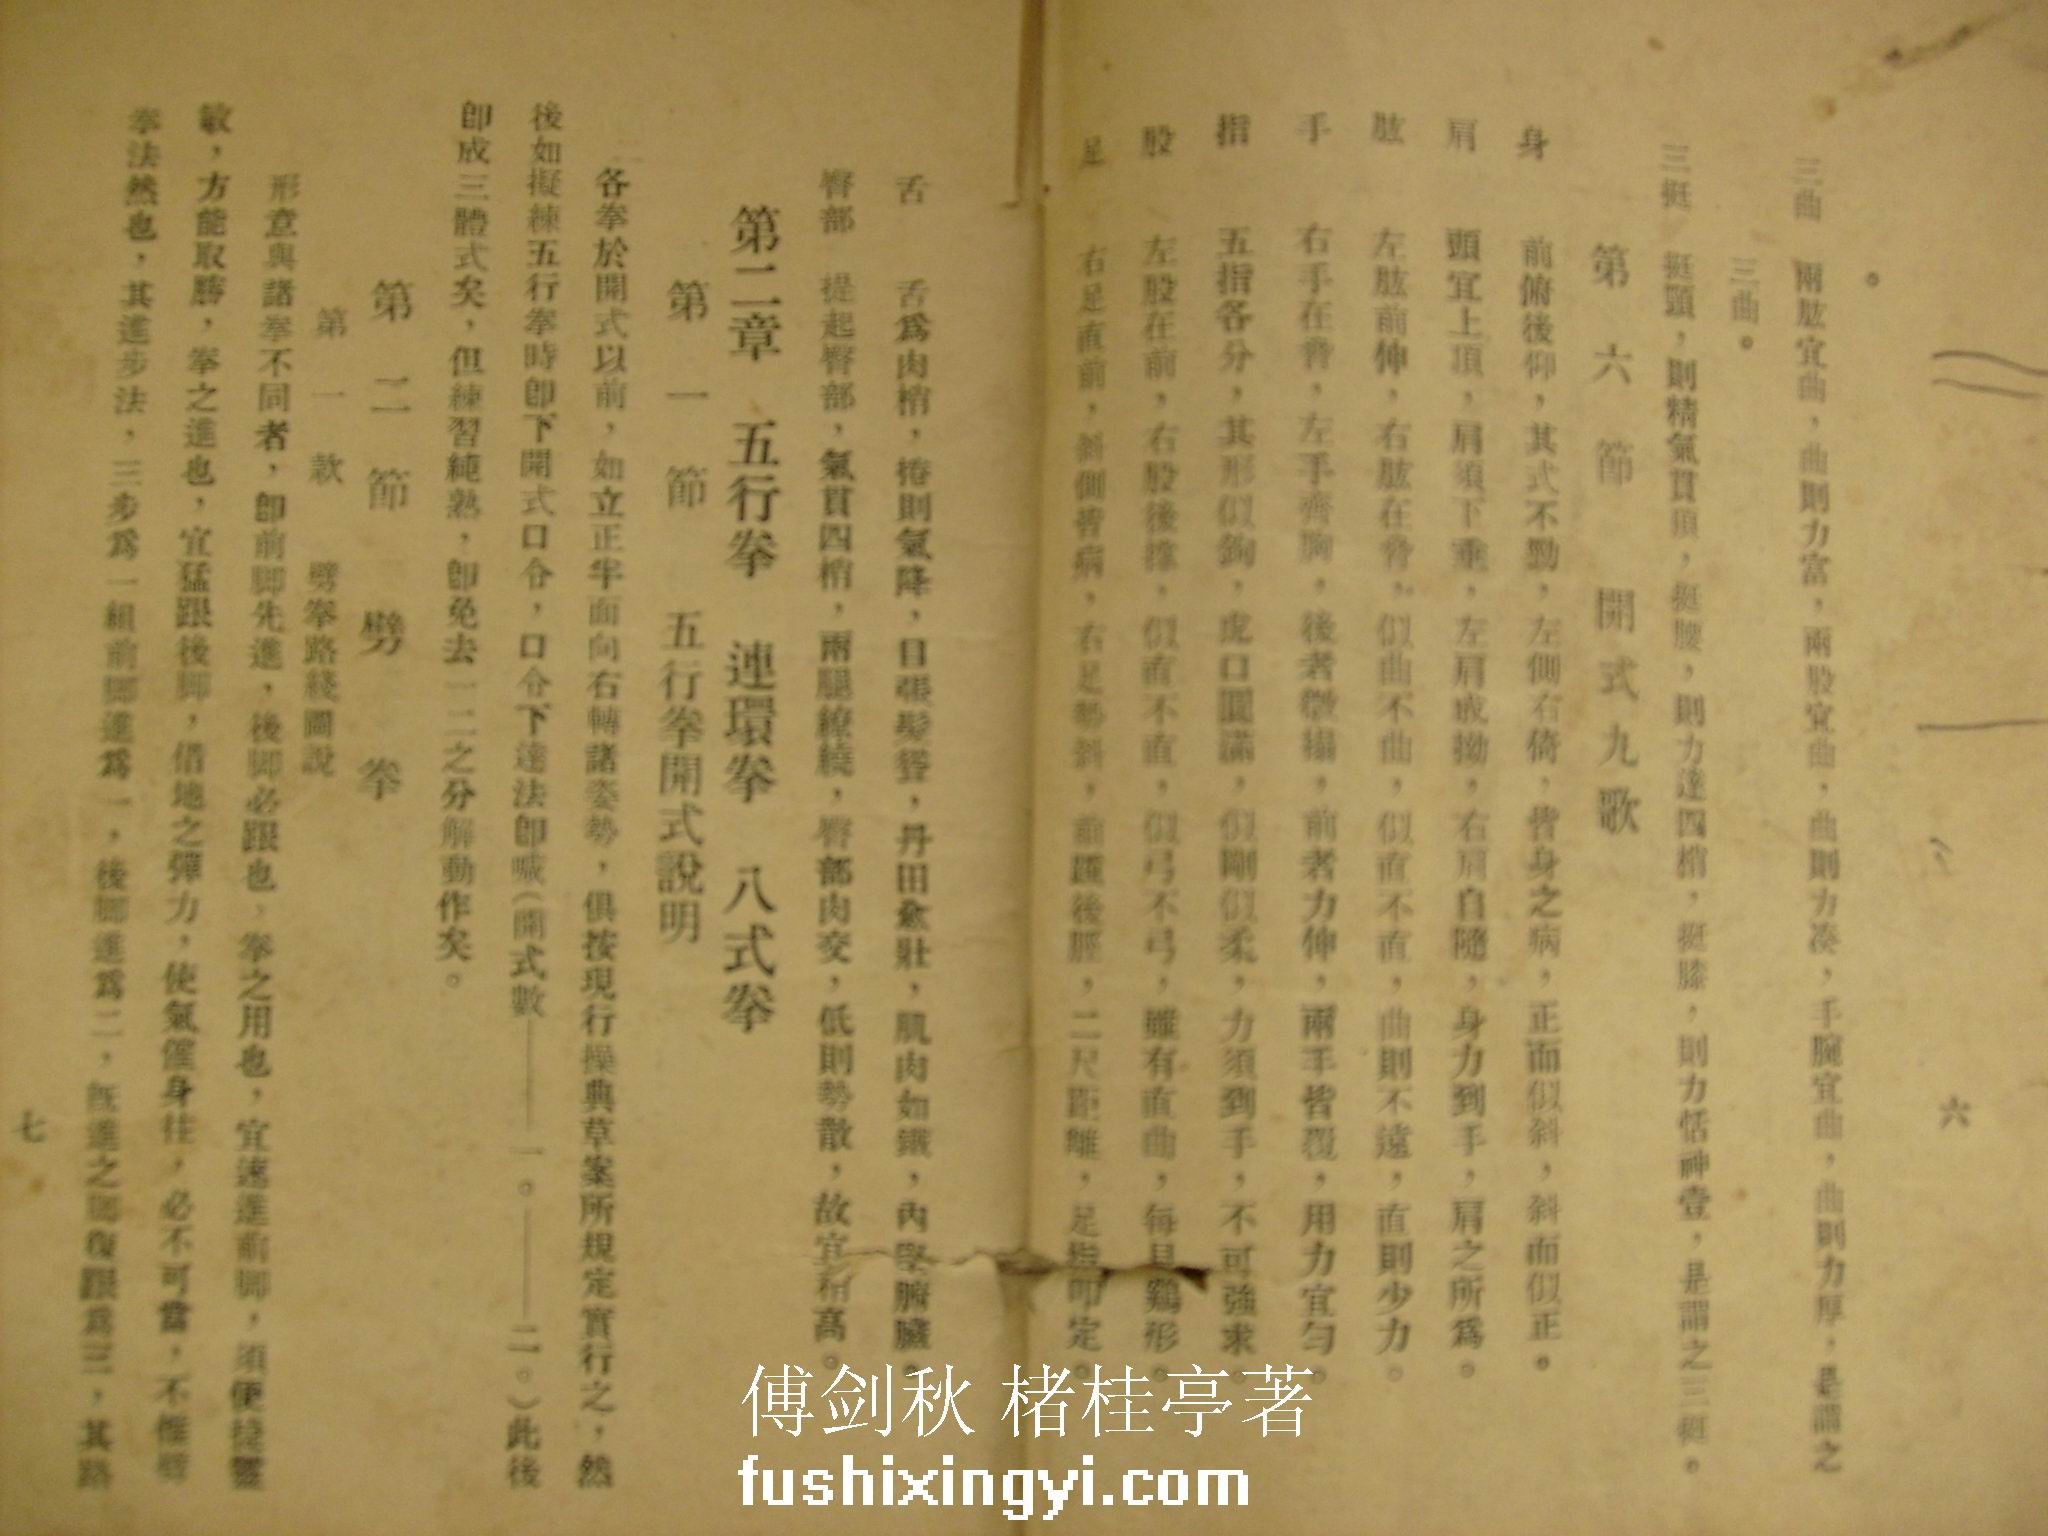 。
三曲　兩肱宜曲，曲則力富，兩股宜曲，曲則力凑，手腕宜曲，曲則力厚，是謂之
三曲。
三挺　挺頸，則精氣貫頂，挺腰，則力達四梢，挺膝，則力恬神壹，是謂之三挺。
第六節　開式九歌
身　前俯後仰，其式不勁，左側右倚，皆身之病，正而似斜，斜而似正。
肩　頭宜上頂，肩須下垂，左肩成拗，右肩自隨，身力到手，肩之所爲。
肱　左肱前伸，右肱在脅，似曲不曲，似直不直，曲則不遠，直則少力。
手　右手在脅，左手齊胸，後者微搨，前者力伸，兩手皆覆，用力宜勻。
指　五指各分，其形似鉤，虎口圓滿，似剛似柔，力須到手，不可強求。
股　左股在前，右股後撐，似直不直，似弓不弓，雖有直曲，每見鷄形。
足　右足直前，斜側皆病，右足勢斜，前踵後脛，二尺距離，足指叩定。
六
舌　舌爲肉梢，捲則氣降，目張髮聳，丹田愈壯，肌肉如鐵，內堅腑臟。
臀部　提起臀部，氣貫四梢，兩腿繚繞，臀部肉交，低則勢散，故宜稍高。
第二章　五行拳　連環拳　八式拳
第一節　五行拳開式說明
各拳於開式以前，如立正半面向右轉諸姿勢，俱按現行操典草案所規定實行之，然
後如擬練五行拳時卽下開式口令，口令下達法卽喊（開式數——一。——二。）此後
卽成三體式矣，但練習純熟，卽免去一二之分解動作矣。
第二節　劈拳
第一款　劈拳路綫圖說
形意與諸拳不同者，卽前脚先進，後脚必跟也、拳之用也，宜速進前脚，須便捷靈
敏，方能取勝，拳之進也，宜猛跟後脚，借地之彈力，使氣催身往，必不可當，不惟劈
拳法然也，其進步法，三步爲一組前脚進爲一，後脚進爲二，旣進之脚復跟爲三，其路
七
傅剑秋 楮桂亭著
fushixingyi.com